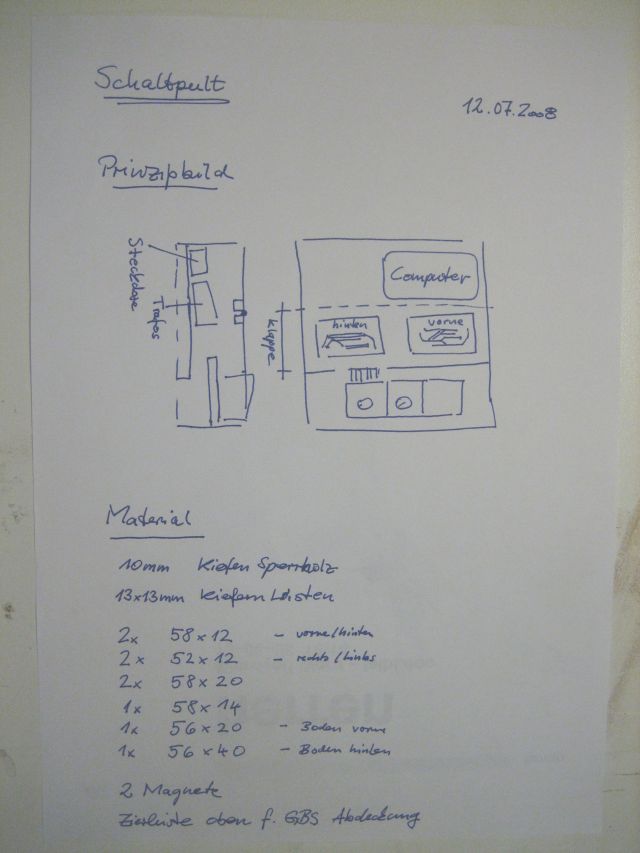 Schaltpult
12.07.2008
Prinzipbild
Steckdose
Trafos
Klappe
Computer
hinten
vorne
Material
10mm Kiefen Sperrholz
13x13mm Kiefern Leisten
2x 58x12 - vorne/hinten
2x 52x12 - rechts/links
2x 58x20
1x 58x14
1x 56x20 - Boden vorne
1x 56x40 - Boden hinten
2 Magnete
Zierleiste oben f. GBS Abdeckung